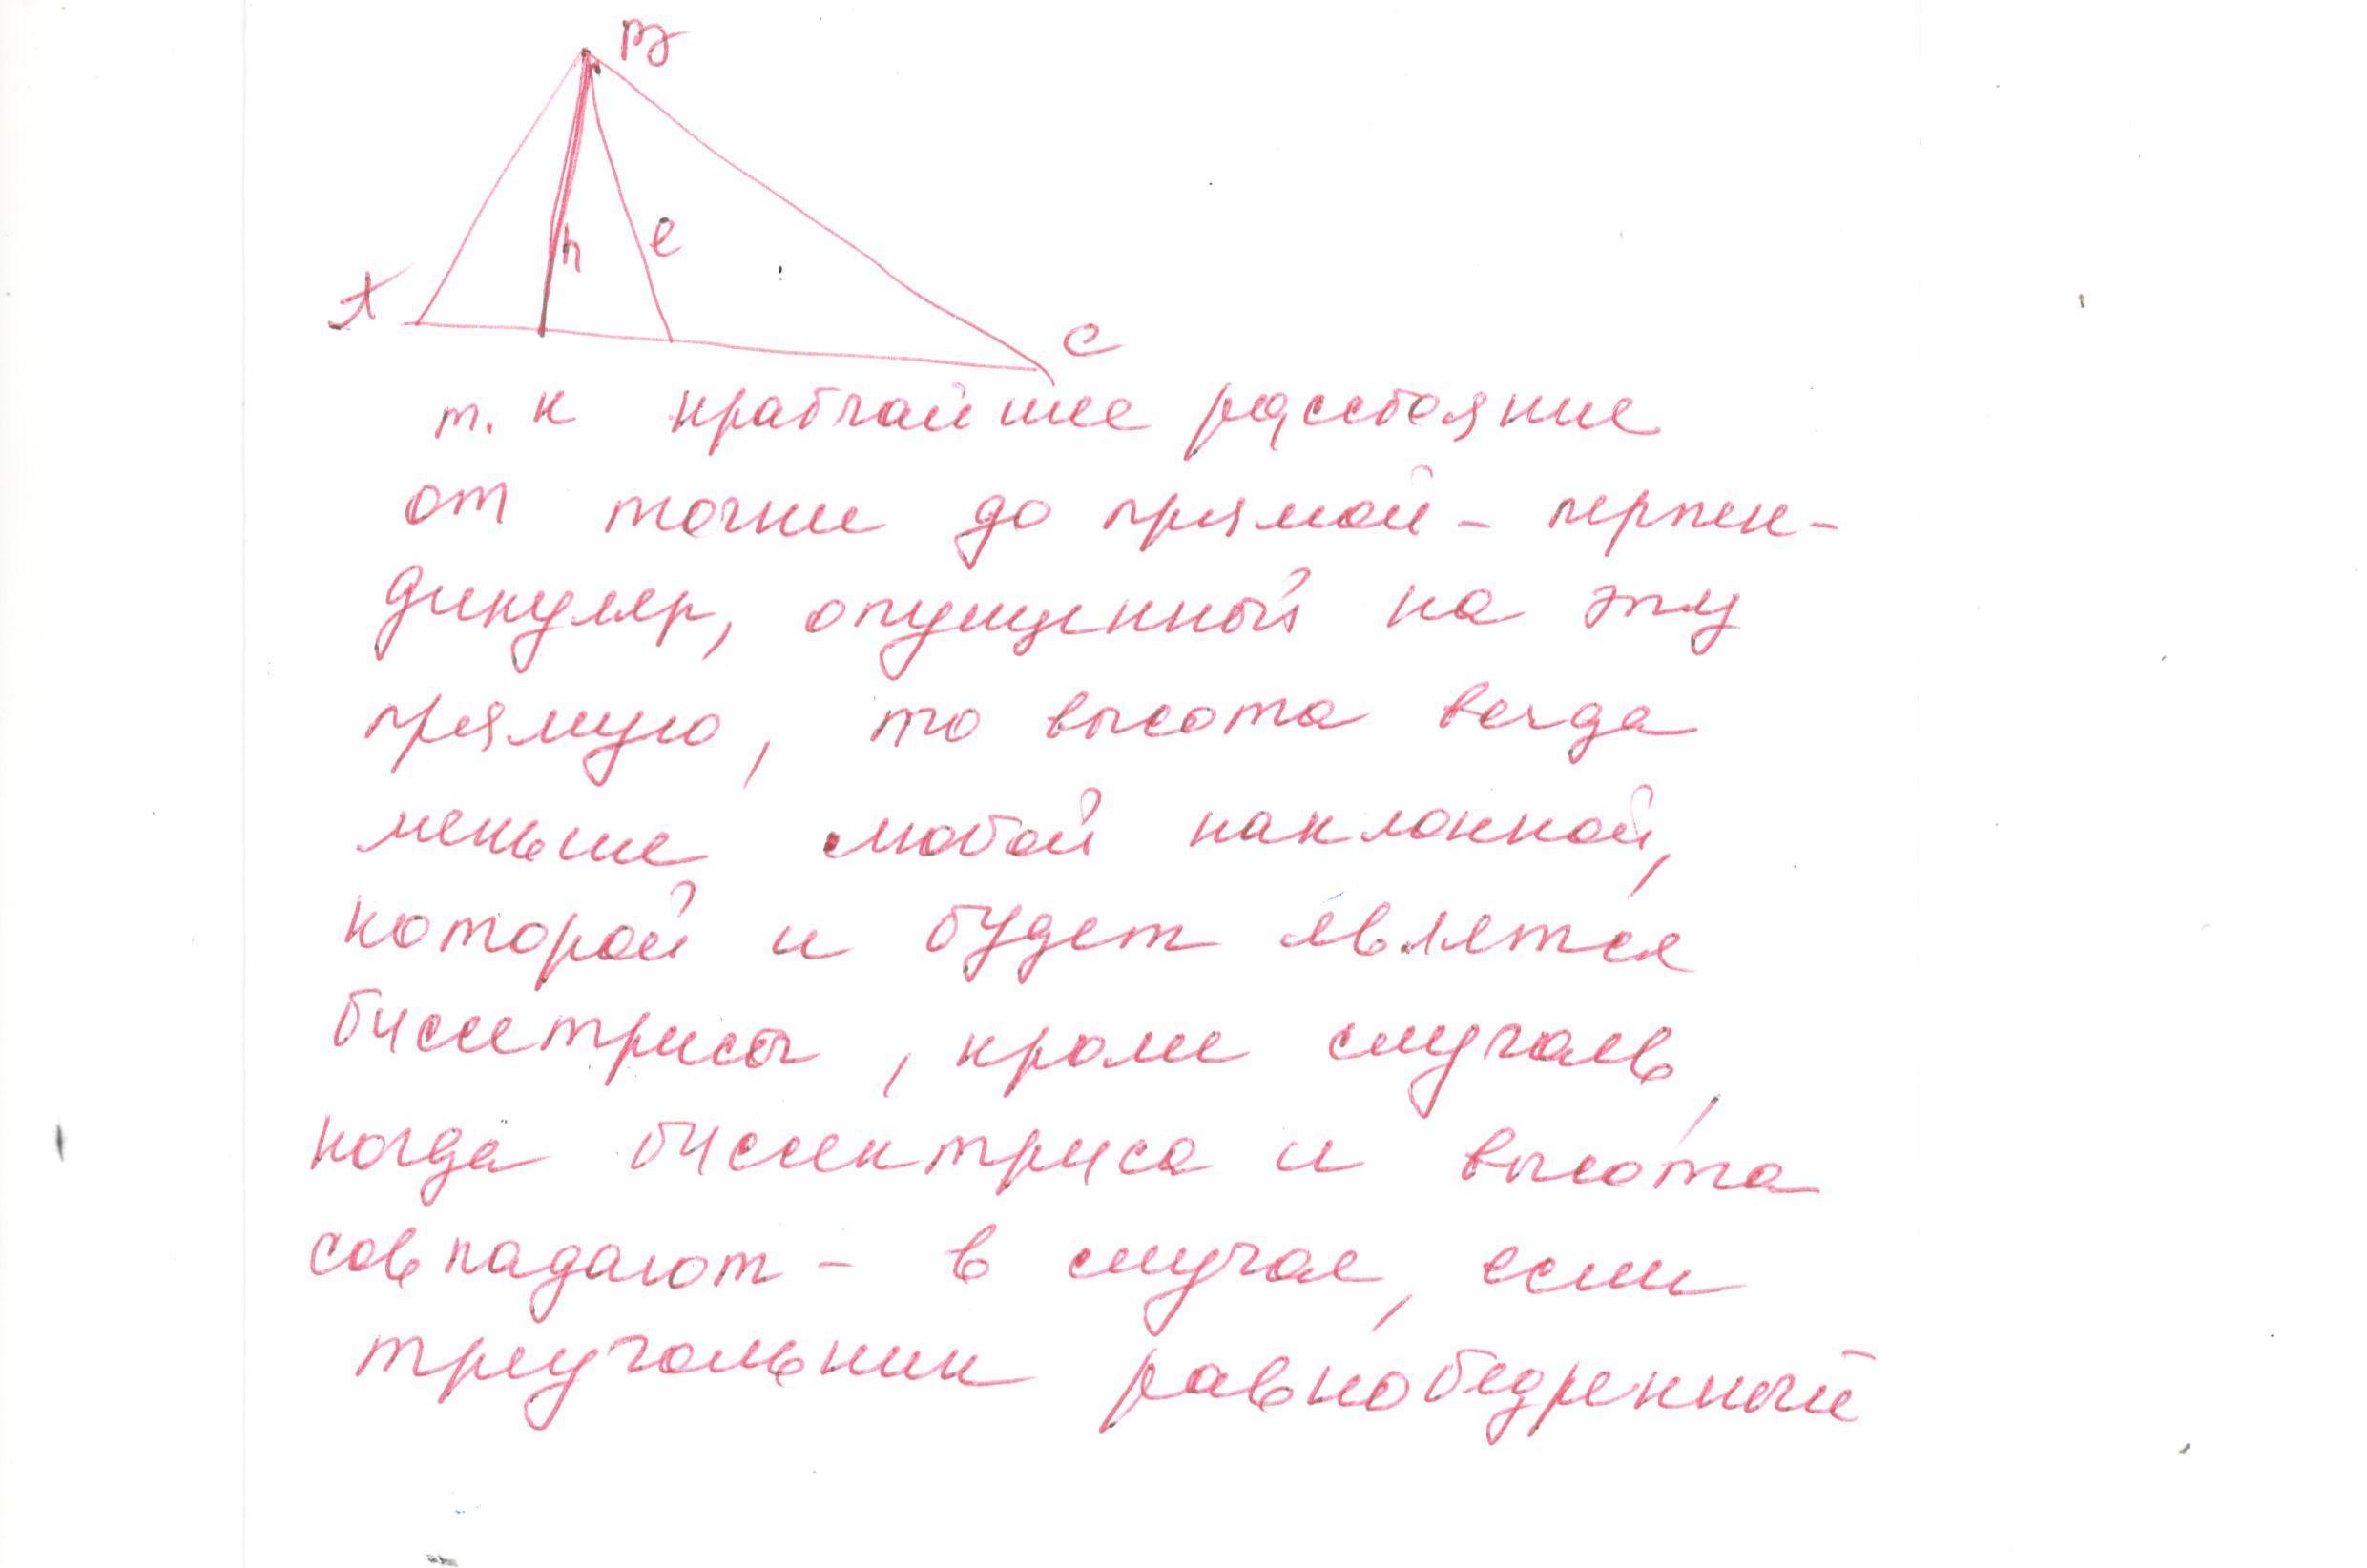 В
h
l
А
С
т. к кратчайшее расстояние
от точки до прямой - перпен-
дикуляр, опущенный на эту
прямую, то высота всегда
меньше любой наклонной,
которой и будет является
биссетрисы, кроме случаев,
когда биссектриса и высота
совпадают - в случае, если
треугольник равнобедренный